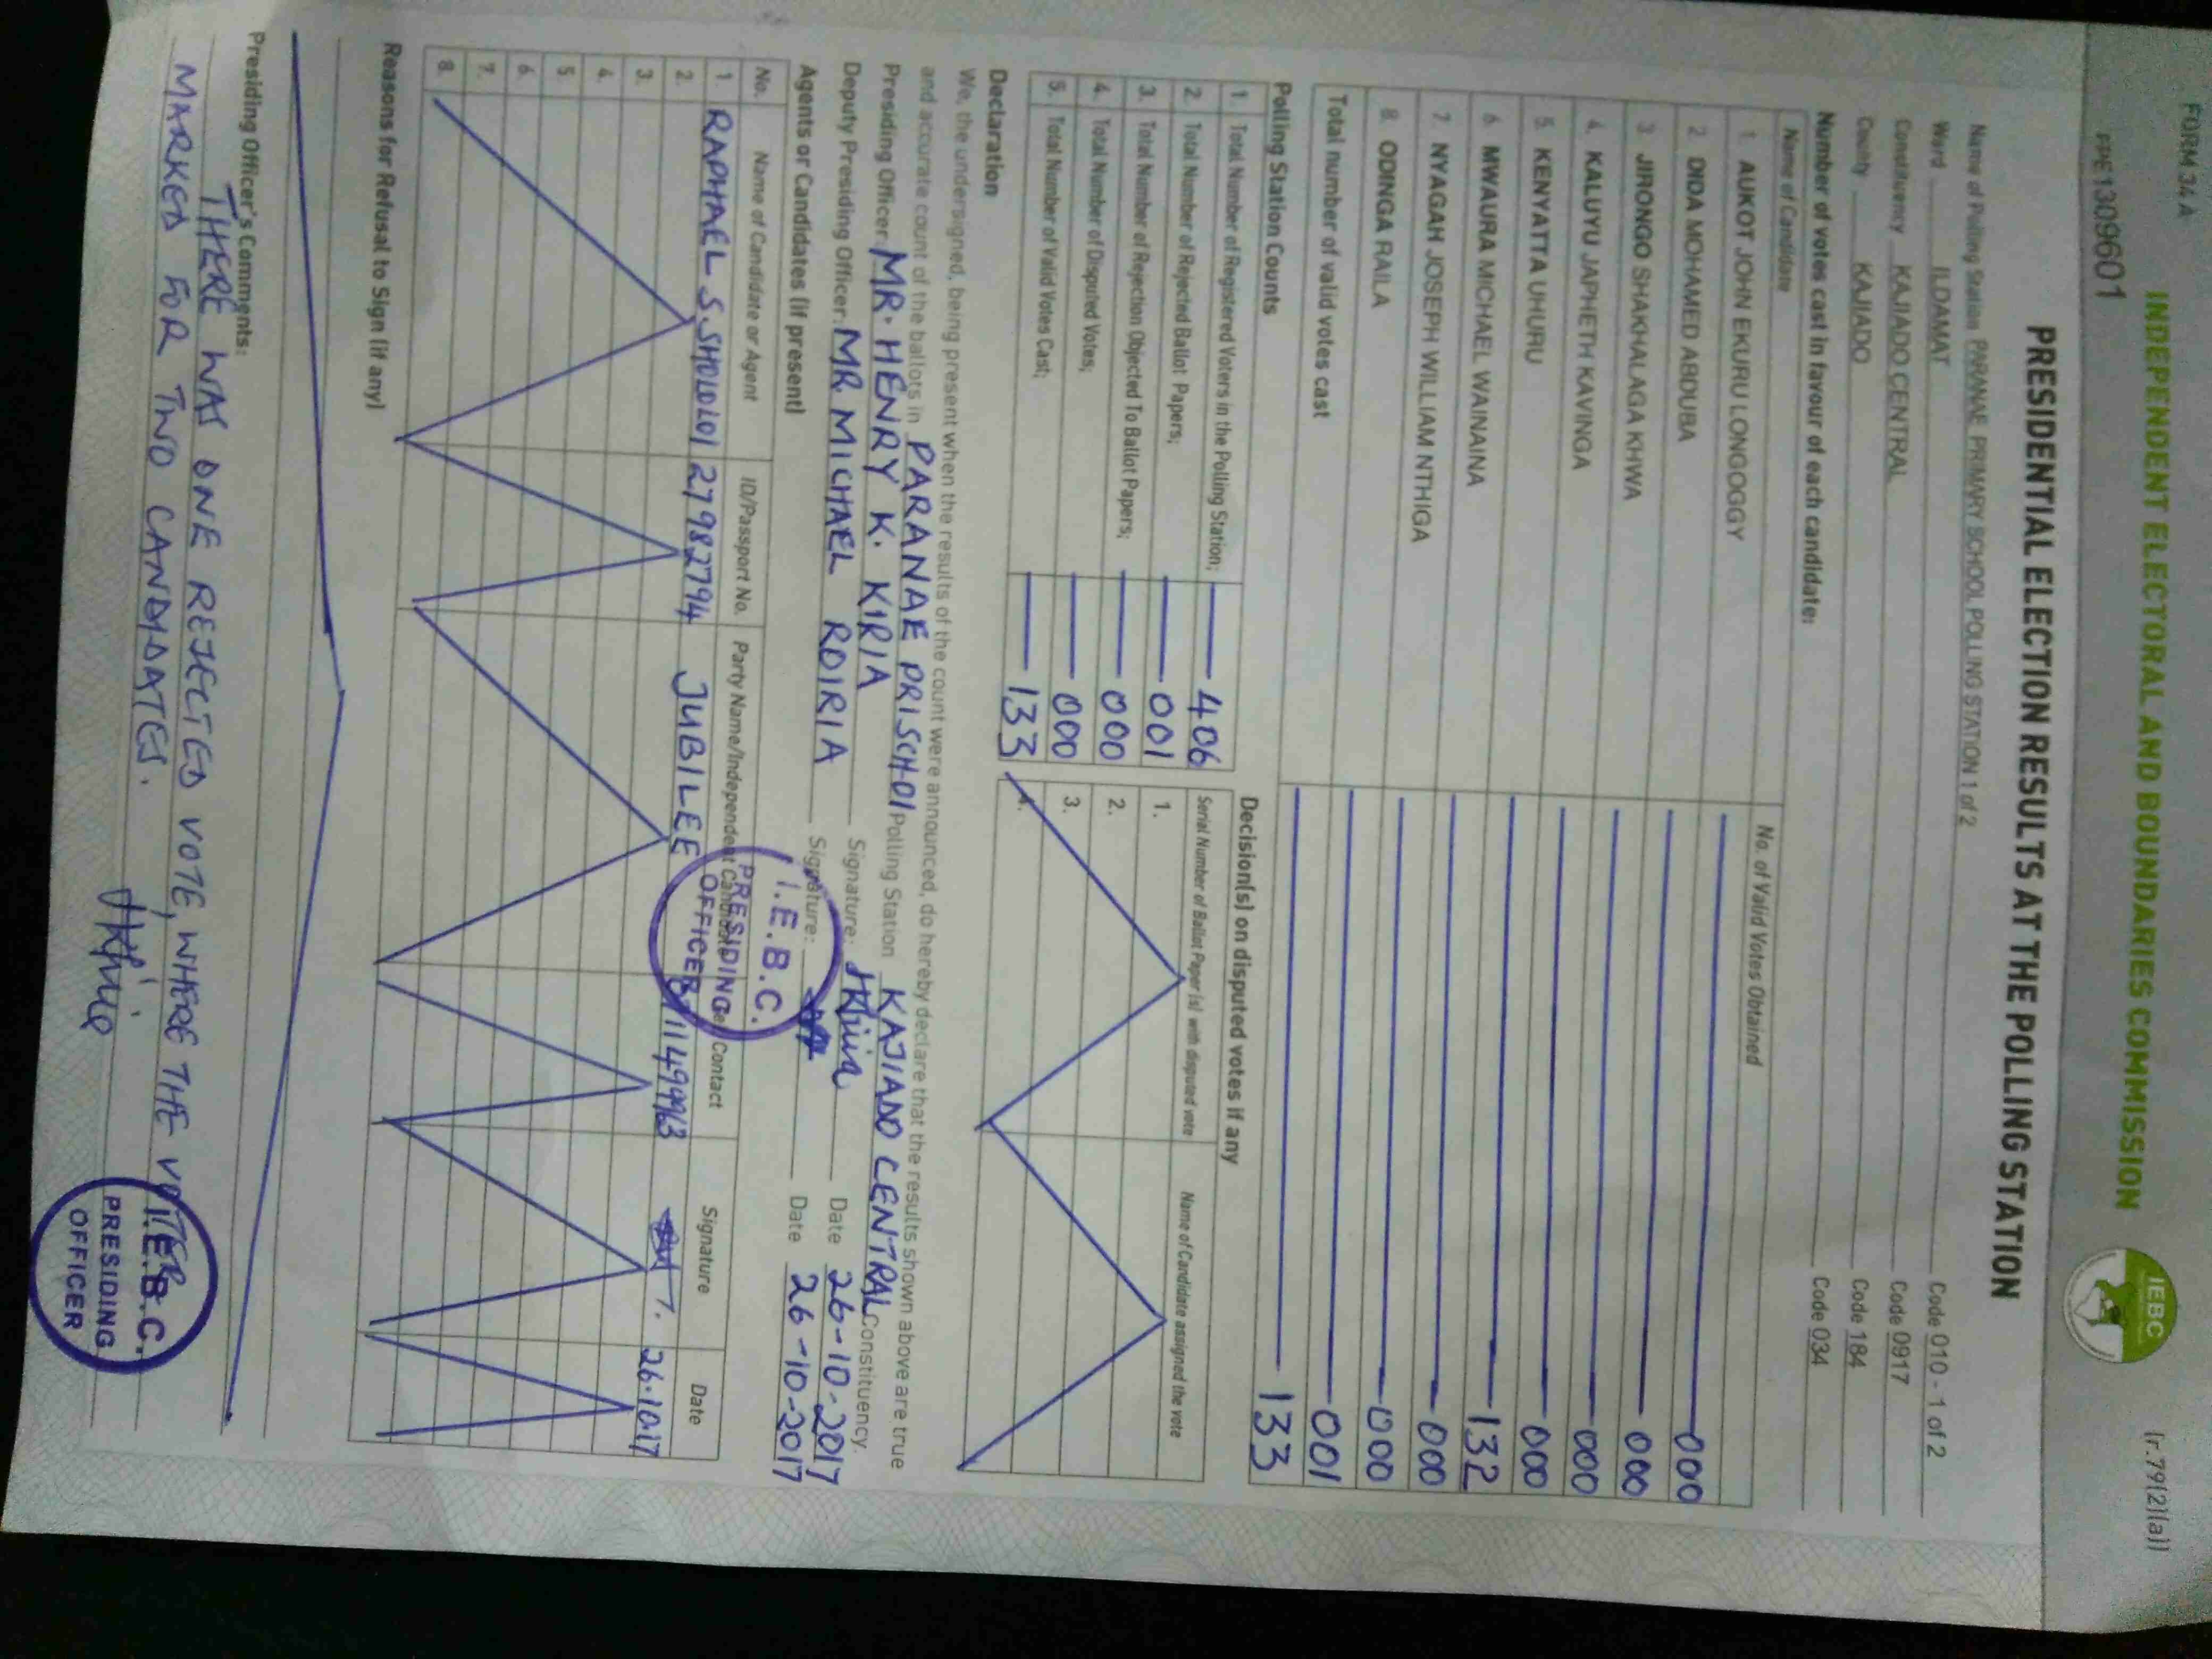 FORM 34 A
[r.79(2)(a)]
INDEPENDENT ELECTORAL AND BOUNDARIES COMMISSION
IEBC
PPE1309601
PRESIDENTIAL ELECTION RESULTS AT THE POLLING STATION
Name of Polling Station PARANAE PRIMARY SCHOOL POLLING STATION 1 of 2 Code 010 - 1 of 2
Ward ILDAMAT Code 0917
Constituency KAJIADO CENTRAL Code 184
County KAJIADO Code 034
Number of votes cast in favour of each candidate:
Name of Candidate No. of Valid Votes Obtained
1. AUKOT JOHN EKURU LONGOGGY 000
2. DIDA MOHAMED ABDUBA 000
3. JIRONGO SHAKHALAGA KHWA 000
4. KALUYU JAPHETH KAVINGA 000
5. KENYATTA UHURU 132
6. MWAURA MICHAEL WAINAINA 000
7. NYAGAH JOSEPH WILLIAM NTHIGA 000
8. ODINGA RAILA 001
Total number of valid votes cast 133
Polling Station Counts
1. Total Number of Registered Voters in the Polling Station; 406
2. Total Number of Rejected Ballot Papers; 001
3. Total Number of Rejection Objected To Ballot Papers; 000
4. Total Number of Disputed Votes; 000
5. Total Number of Valid Votes Cast; 133
Decision(s) on disputed votes if any
Serial Number of Ballot Paper (s) with disputed vote Name of Candidate assigned the vote
1.
2.
3.
4.
Declaration
We, the undersigned, being present when the results of the count were announced, do hereby declare that the results shown above are true
and accurate count of the ballots in PARANAE PRI SCHOOl Polling Station KAJIADO CENTRAL Constituency.
Presiding Officer: MR. HENRY K. KIRIA Signature: Date 26-10-2017
Deputy Presiding Officer: MR MICHAEL ROIRIA Signature: Date 26-10-2017
Agents or Candidates (if present)
No. Name of Candidate or Agent ID/Passport No. Party Name/Independent Contact Signature Date
1. RAPHAEL S. SHOLOLOI 27982794 JUBILEE 26.10.17
2.
3.
4.
5.
6.
7.
8.
I.E.B.C.
PRESIDING
OFFICER
Reasons for Refusal to Sign (if any)
Presiding Officer's Comments:
THERE WAS ONE REJECTED VOTE, WHERE THE VOTER
MARKED FOR TWO CANDIDATES.
I.E.B.C.
PRESIDING
OFFICER